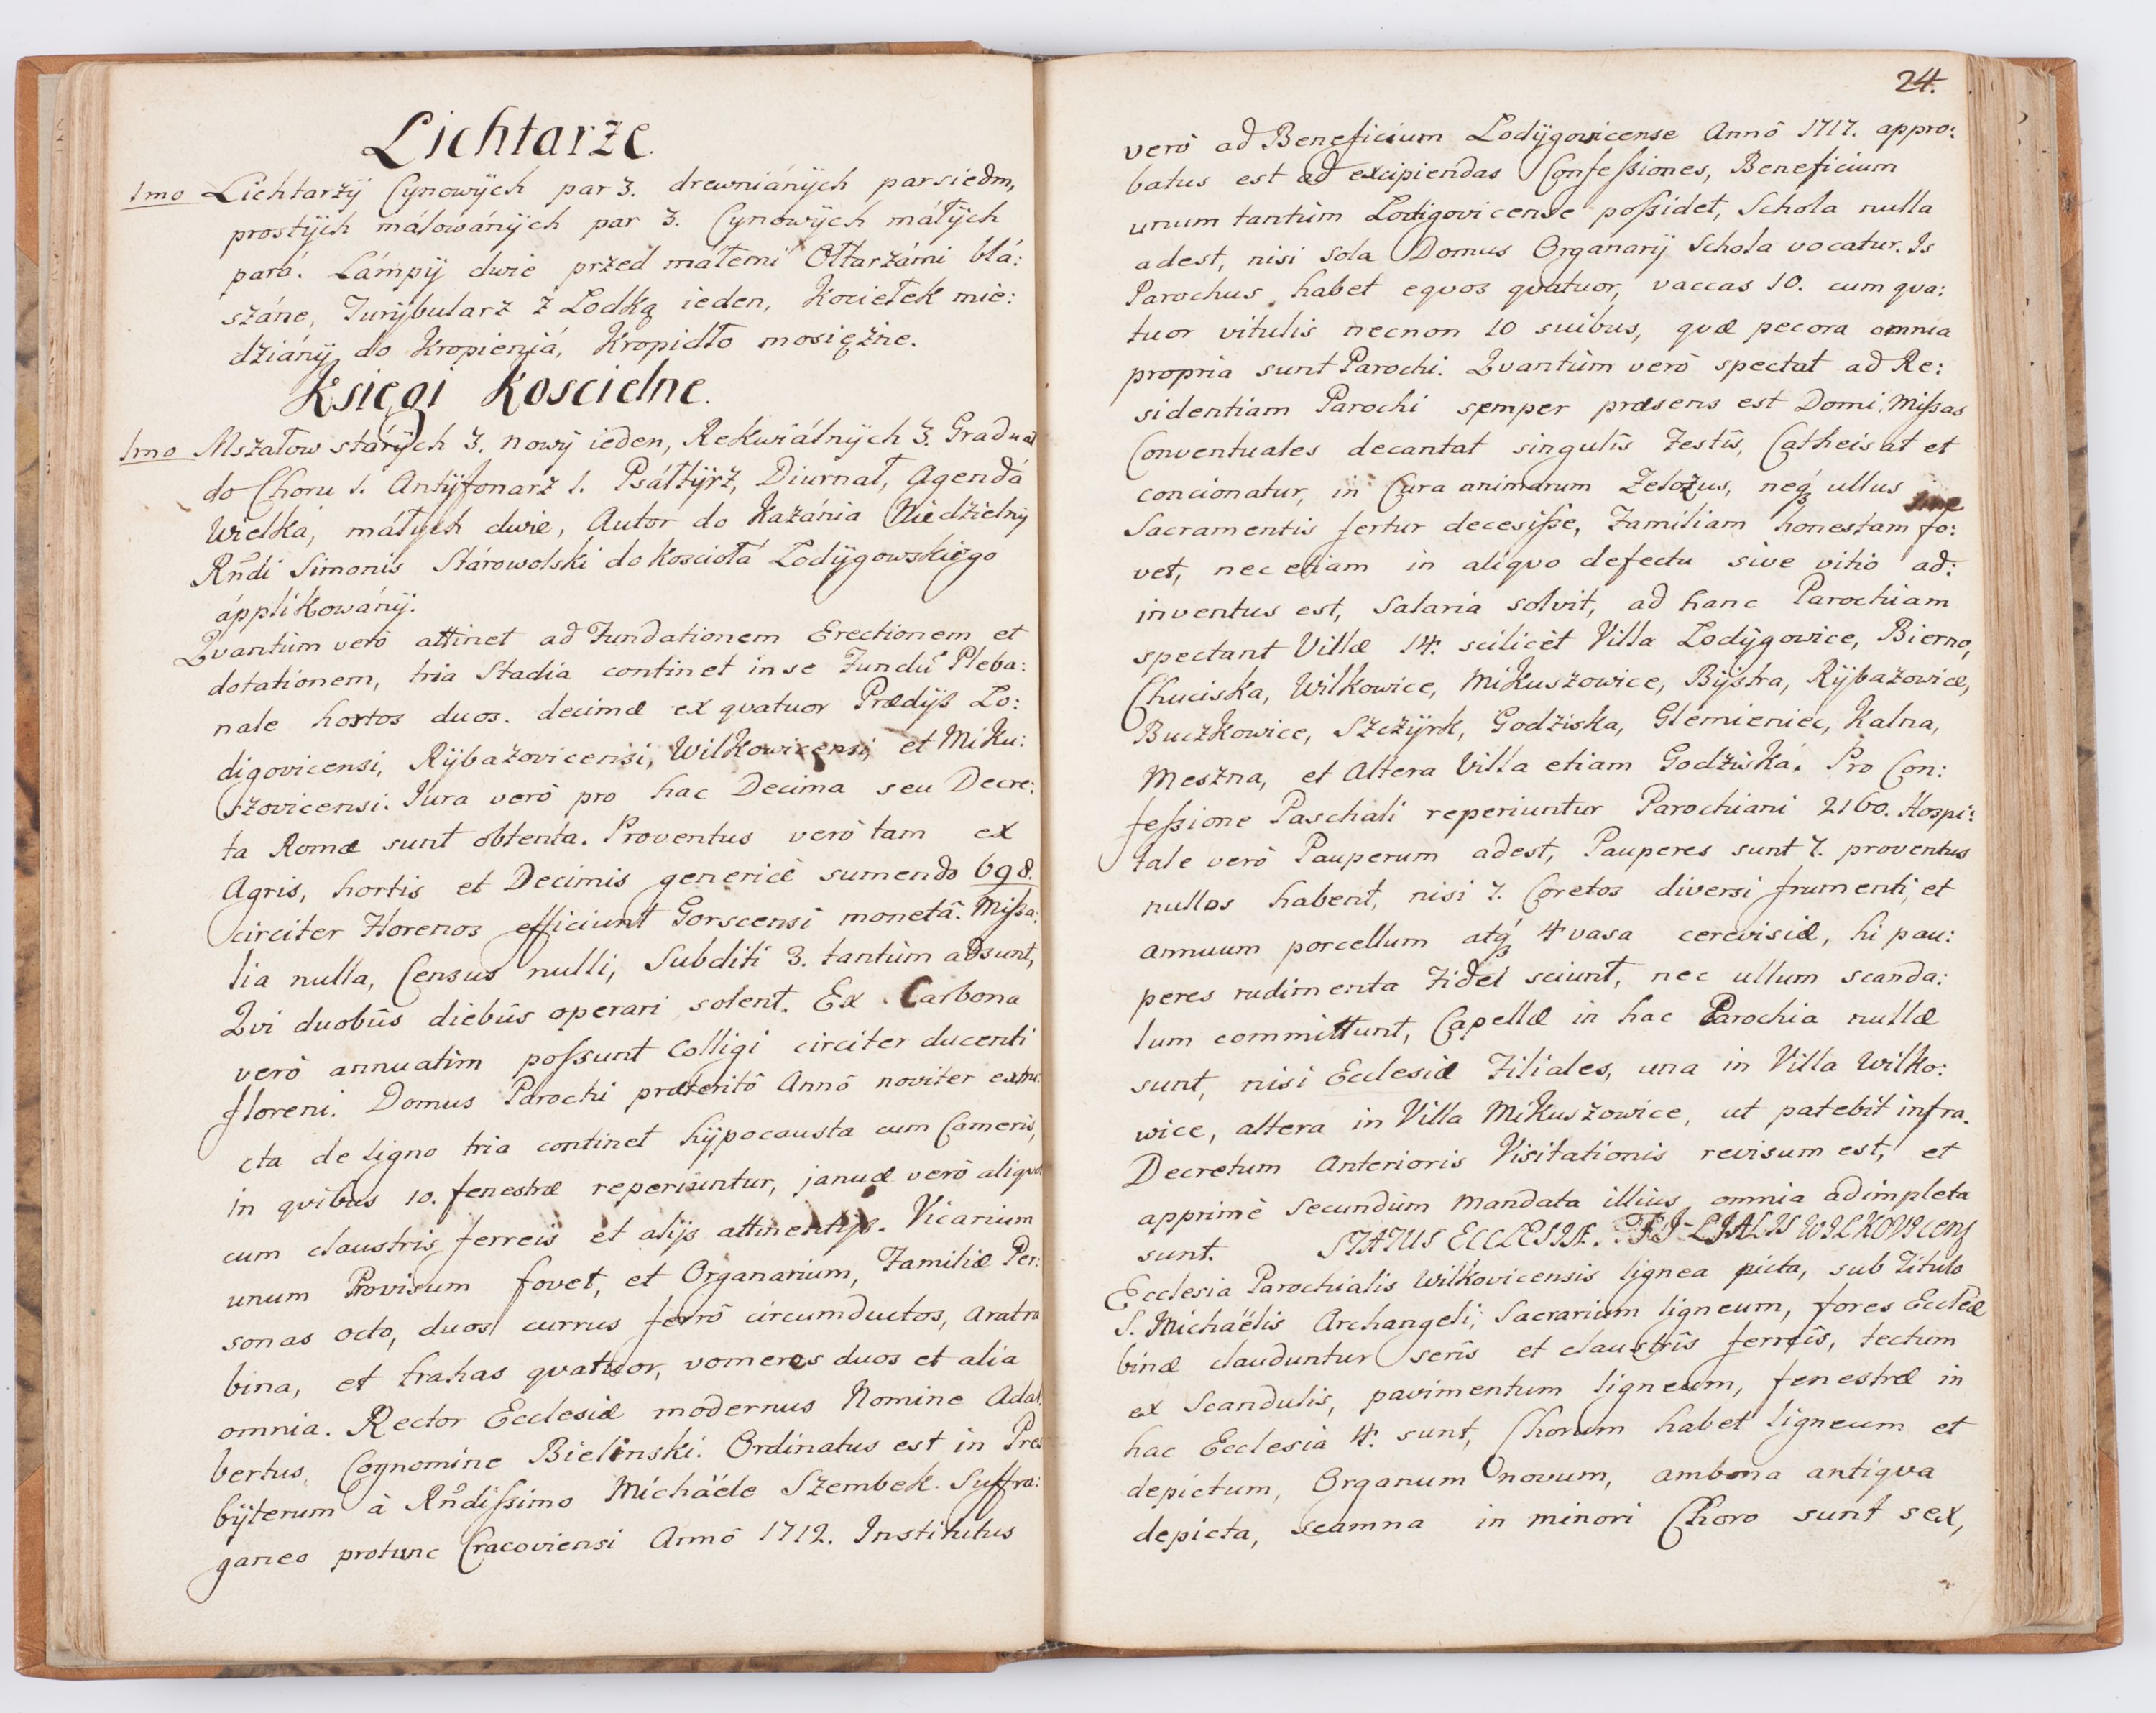 Lichtarze.
1mo Lichtarzÿ Cynowÿch par 3. drewniánÿch par siedm,
prostÿch málowánÿch par 3. Cynowÿch máłÿch
pará. Lámpÿ dwie przed máłemi Ołtarzámi blá:
száne, Turÿbularz z Lodką ieden, Kociełek mie:
dziánÿ do Kropieniá, Kropidło mosiężne.
Księgi Koscielne.
1mo Mszałow stárÿch 3. nowÿ ieden, Rekwiálnÿch 3. Gradual
do Choru 1. Antÿfonarz 1. Psáłtÿrz, Diurnał, Agendá
Wielka, máłÿch dwie, Autor do Kazánia Niedzielnÿ
Rñdi Simonis Stárowolski do Koscioła Lodÿgowskiego
ápplikowánÿ.
Qvantùm verò attinet ad Fundationem Erectionem et
dotationem, tria Stadia continet in se Fundũ Pleba:
nale hortos duos. decimæ ex qvatuor Prædijs Lo:
digovicensi, Rÿbazovicensi, Wilkowicensi, et Miku:
szovicensi. Jura verò pro hac Decima seu Decre:
ta Romæ sunt obtenta. Proventus verò tam ex
Agris, hortis et Decimis genericè sumendo 698.
circiter Florenos efficiunt Gorscensi monetâ. Missa:
lia nulla, Census nulli, Subditi 3. tantùm adsunt,
Qvi duobûs diebûs operari solent. Ex Carbona
verò annuatìm possunt Colligi circiter ducenti
floreni. Domus Parochi præteritô Annô noviter extru:
cta de ligno tria continet hÿpocausta cum Cameris,
in qvibus 10. fenestræ reperiuntur, januæ verò aliqvot
cum claustris ferreis et alijs attinentijs. Vicarium
unum Provisum fovet, et Organarium, Familiæ Per:
sonas octo, duos currus ferrô circumductos, aratra
bina, et trahas qvatuor, vomeres duos et alia
omnia. Rector Ecclesiæ modernus Nomine Adal:
bertus, Cognomine Bielinski. Ordinatus est in Pres
bÿterum à Rñdissimo Michaële Szembek. Suffra:
ganeo protunc Cracoviensi Annô 1712. Institutus
24.
verò ad Beneficium Lodÿgovicense Annô 1717. appro:
batus est ad excipiendas Confessiones, Beneficium
unum tantùm Lodigovicense possidet, Schola nulla
adest, nisi sola Domus Organarij Schola vocatur. Is
Parochus habet eqvos qvatuor, vaccas 10. cum qva:
tuor vitulis necnon 10 suibus, quæ pecora omnia
propria sunt Parochi. Qvantùm verò spectat ad Re:
sidentiam Parochi semper præsens est Domi, Missas
Conventuales decantat singulîs Festîs, Catheisat et
concionatur, in Cura animarum Zelozus, neqꝫ ullus sine
Sacramentis fertur decesisse, Familiam honestam fo:
vet, nec etiam in aliqvo defectu sive vitio ad:
inventus est, Salaria solvit, ad hanc Parochiam
spectant Villæ 14. scilicèt Villa Lodÿgowice, Bierno,
Chuciska, Wilkowice, Mikuszowice, Bÿstra, Rÿbazowice,
Buczkowice, Szczÿrk, Godziska, Glemieniec, Kalna,
Meszna, et Altera Villa etiam Godziská. Pro Con:
fessione Paschali reperiuntur Parochiani 2160. Hospi:
tale verò Pauperum adest, Pauperes sunt 7. proventus
nullos habent, nisi 7. Coretos diversi frumenti, et
annuum porcellum atqꝫ 4 vasa cerevisiæ, hi pau:
peres rudimenta Fidei sciunt, nec ullum scanda:
lum committunt, Capellæ in hac Parochia nullæ
sunt, nisi Ecclesiæ Filiales, una in Villa Wilko:
wice, altera in Villa Mikuszowice, ut patebit infra.
Decretum Anterioris Visitationis revisum est, et
apprimè secundùm mandata illius omnia adimpleta
sunt. STATUS ECCLESIÆ FILIALIS WILKOVICENS
Ecclesia Parochialis Wilkovicensis lignea picta, sub Titulo
S. Michaëlis Archangeli, Sacrarium ligneum, fores Eccleæ
binæ clauduntur serîs et claustrîs ferreîs, tectum
ex Scandulis, pavimentum ligneum, fenestræ in
hac Ecclesia 4. sunt, Chorum habet ligneum et
depictum, Organum novum, ambona antiqva
depicta, scamna in minori Choro sunt sex,